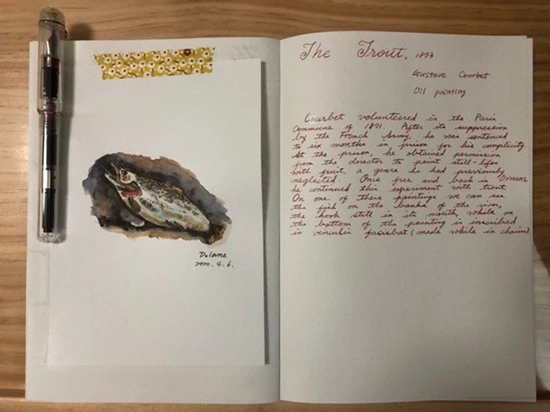 Dolane
2020. 4. 6.
The Trout, 1873
Gustave Courbet
Oil painting
Courbet volunteered in the Paris
Commune of 1871. After its suppression
by the French Army, he was sentenced
to six months in prison for his complicity.
At the prison, he obtained permission
from the director to paint still-lifes
with fruit, a genre he had previously
neglected. Once free and back in Ornans,
he continued this experiment with trout.
On one of these paintings we can see
the fish on the banks of the river,
the hook still in its mouth, while on
the bottom of the painting is inscribed
in vinculis faciebat (made while in chains)